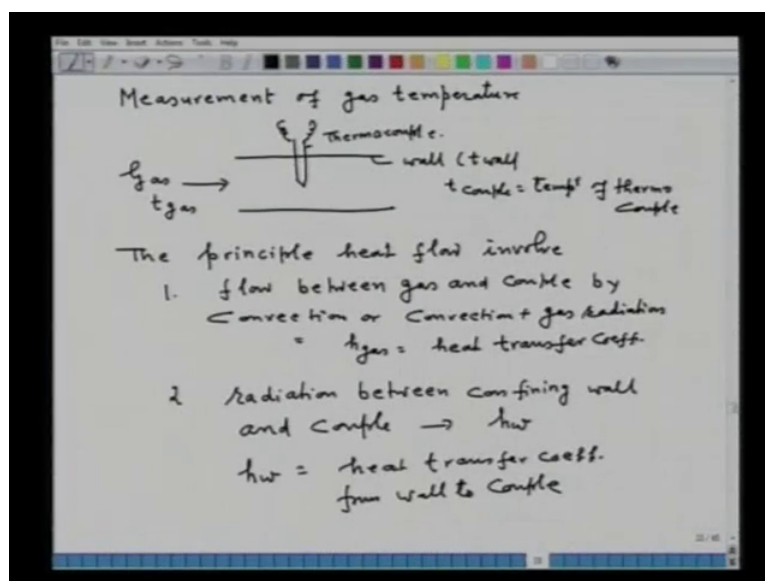 File Edit View Insert Actions Tools Help
Measurement of gas temperature
Thermocouple.
wall (t wall
Gas →
t gas
t couple = Temp^r of thermo
couple
The principle heat flow involve
1. flow between gas and couple by
convection or convection + gas radiation
= hgas = heat transfer coeff.
2 radiation between confining wall
and couple → hw
hw = heat transfer coeff.
from wall to couple